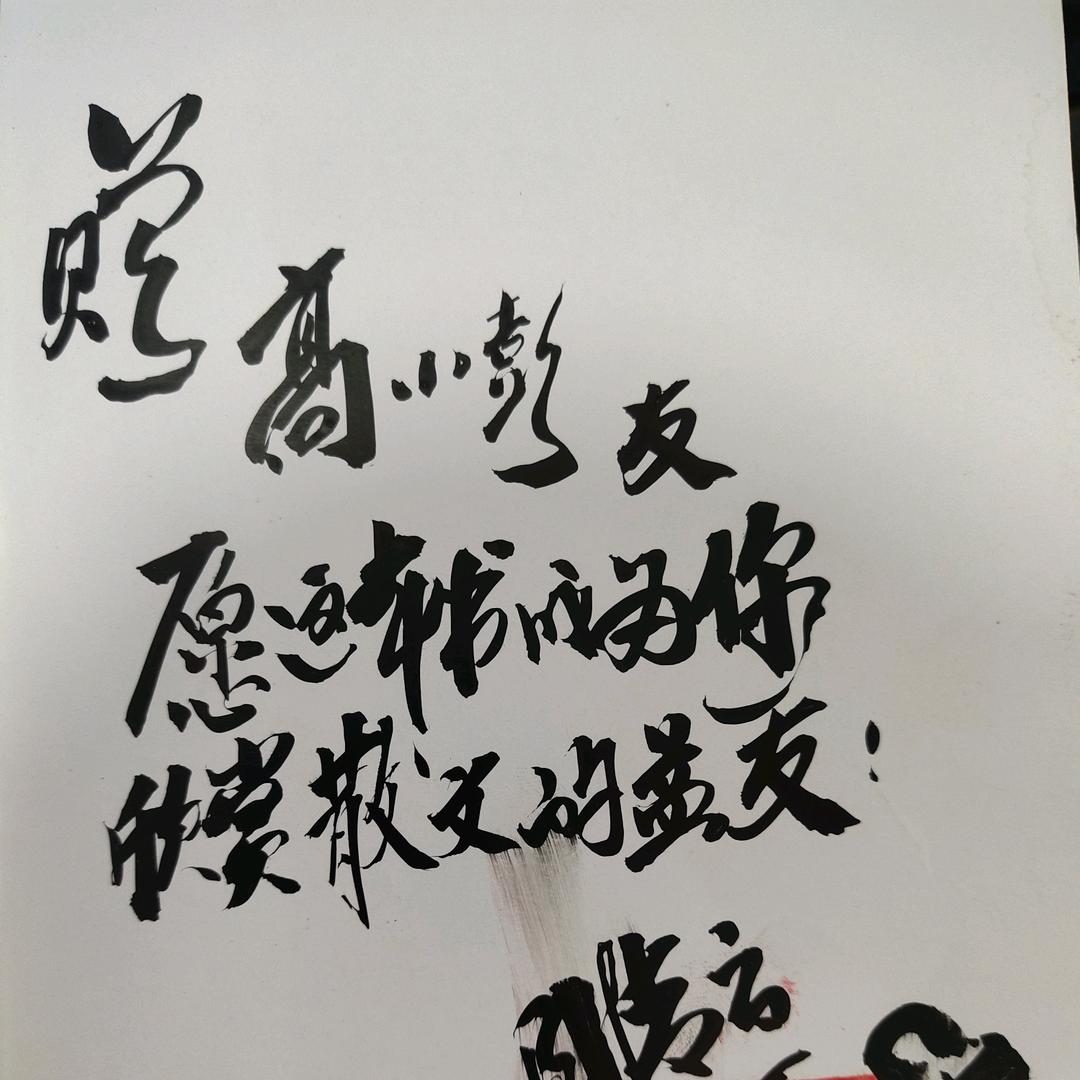 赠
高小彭友
愿这本书成为你
欣赏散文的益友！